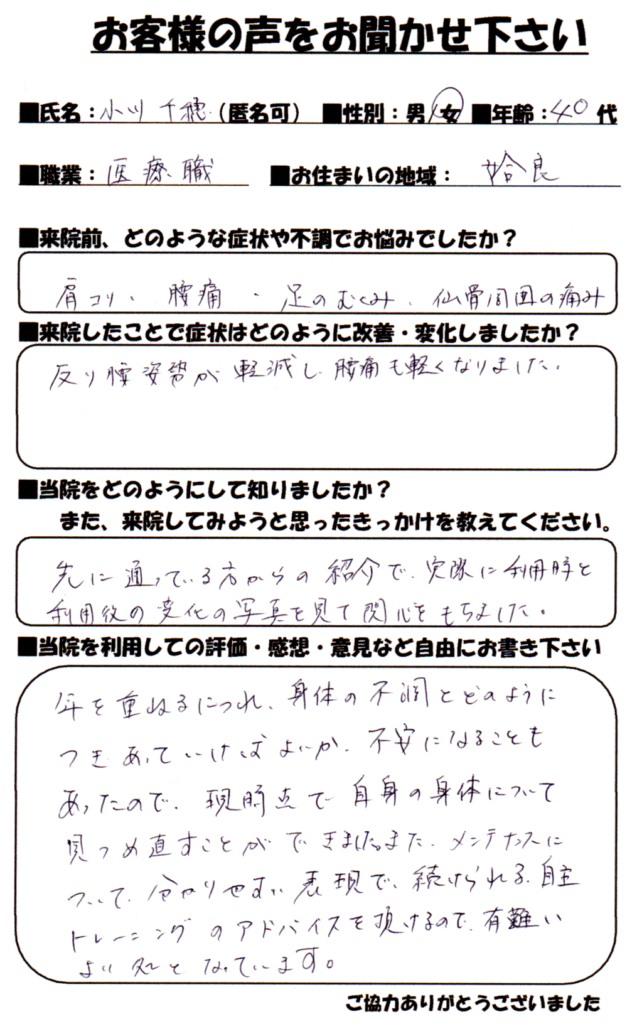 お客様の声をお聞かせ下さい
■氏名：小川 千穂（匿名可） ■性別：男/女 ■年齢：40 代
■職業：医療職 ■お住まいの地域：姶良
■来院前、どのような症状や不調でお悩みでしたか？
肩コリ、腰痛、足のむくみ、仙骨周囲の痛み
■来院したことで症状はどのように改善・変化しましたか？
反り腰姿勢が軽減し、腰痛も軽くなりました。
■当院をどのようにして知りましたか？
また、来院してみようと思ったきっかけを教えてください。
先に通っている方からの紹介で、実際に利用時と
利用後の変化の写真を見て関心をもちました。
■当院を利用しての評価・感想・意見など自由にお書き下さい
年を重ねるにつれ、身体の不調とどのように
つきあっていけばよいか、不安になることも
あったので、現時点で自身の身体について
見つめ直すことができました。また、メンテナンスに
ついて、分かりやすい表現で、続けられる自主
トレーニングのアドバイスを頂けるので、有難い
よい処となっています。
ご協力ありがとうございました